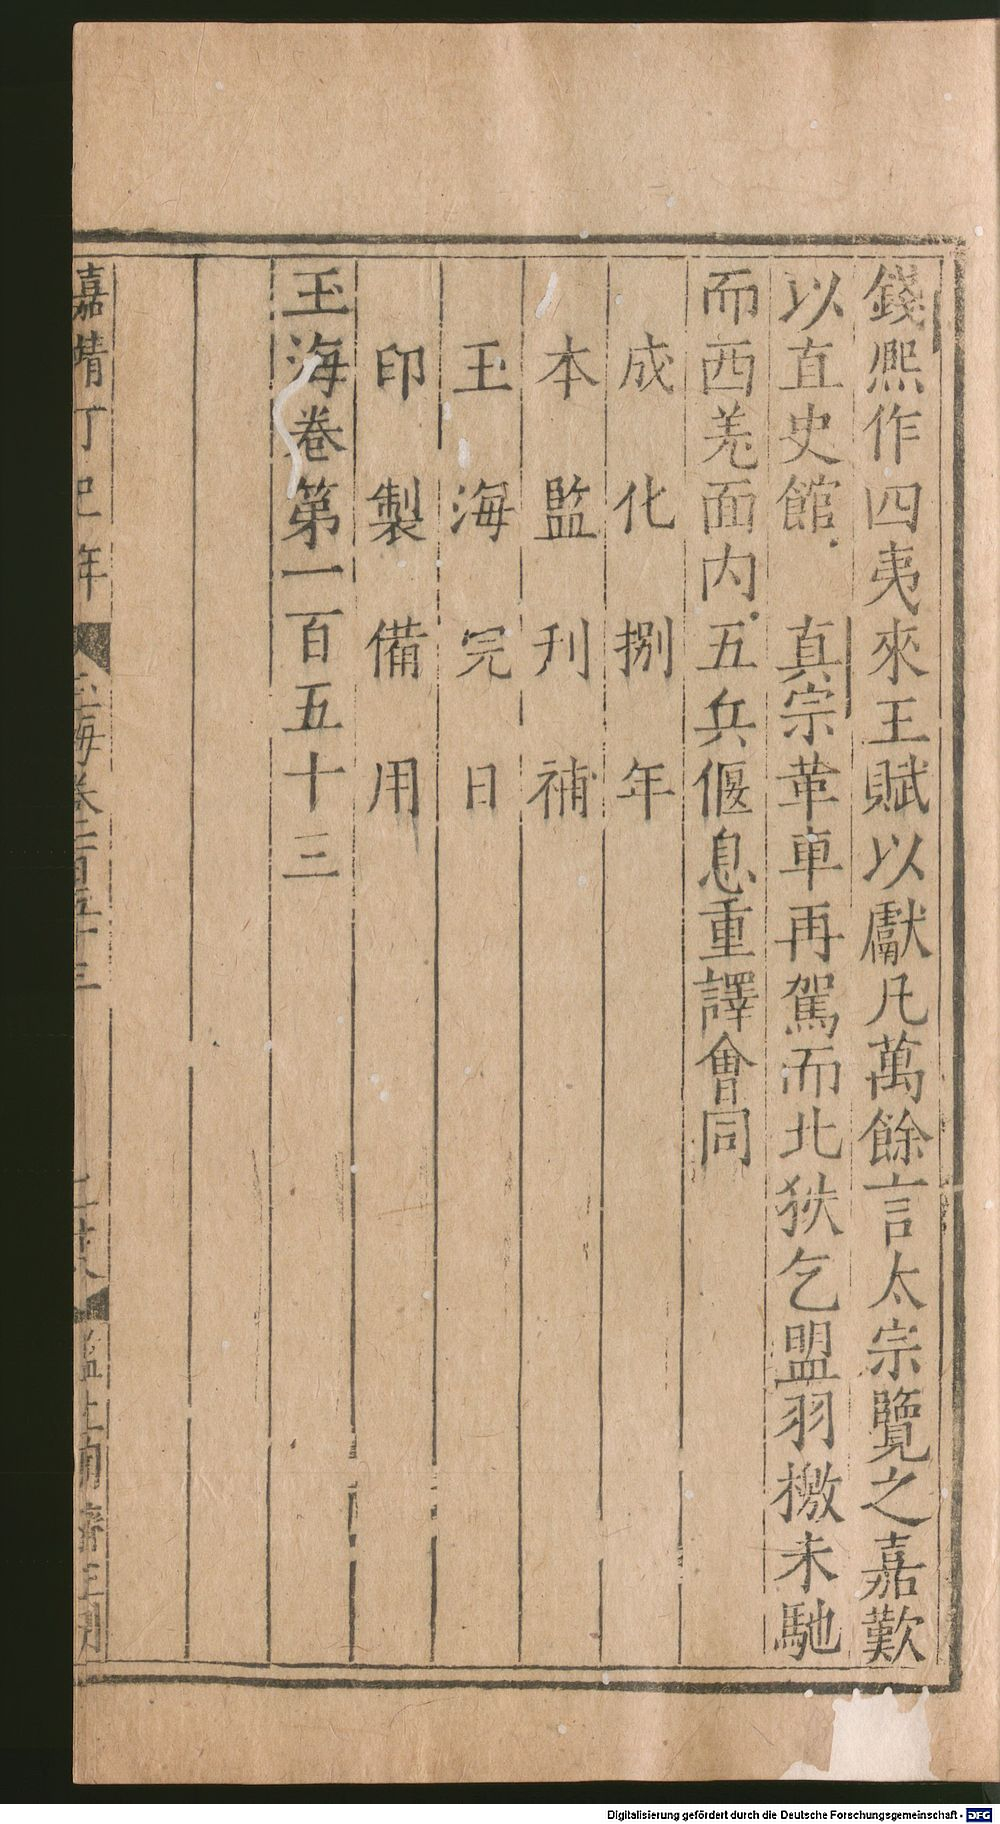 錢熈作四夷來王賦以獻凡萬餘言太宗覽之嘉歎
以直史館 真宗革車再駕而北狄乞盟羽檄未馳
而西羌面内五兵偃息重譯會同
成化捌年
本監刋補
玉海完日
印製備用
玉海卷第一百五十三
嘉靖丁巳年
玉海卷一百五十三
監生
Digitalisierung gefördert durch die Deutsche Forschungsgemeinschaft - DFG